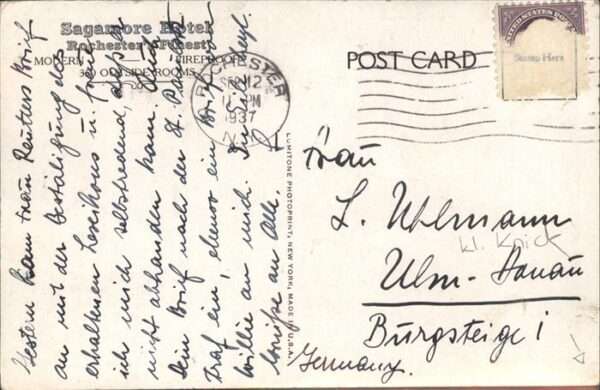 Sagamore Hotel
Rochester's Finest
MODERN FIREPROOF
300 OUTSIDE ROOMS
POST CARD
UNITED STATES
Stamp Here
ROCHESTER
SEP 12
PM
1937
N.Y.
Gestern kam Frau Reuters Brief
an mit der Bestätigung des
erhaltenen Lexikons u. freue
ich mich selbstredend, daß er
nicht abhanden kam. Auch
Dein Brief nach der St. Paul
traf ein, ebenso ein Brief von
Willie an mich.
Grüße an Alle.
LUMITONE PHOTOPRINT, NEW YORK, MADE IN U.S.A.
Frau
L. Uhlmann
kl. Knick
Ulm-Donau
Burgsteige 1
Germany.